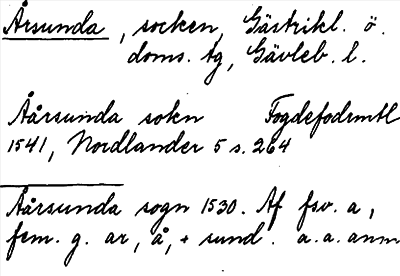 Årsunda, socken, Gästrikl. ö.
doms. tg, Gävleb. l.
Åårsunda sokn Fogdefodrmtl
1541, Nordlander 5 s. 264
Åårsunda sogn 1530. Af fsv. a,
fem. g. ar, å, + sund. a.a. anm